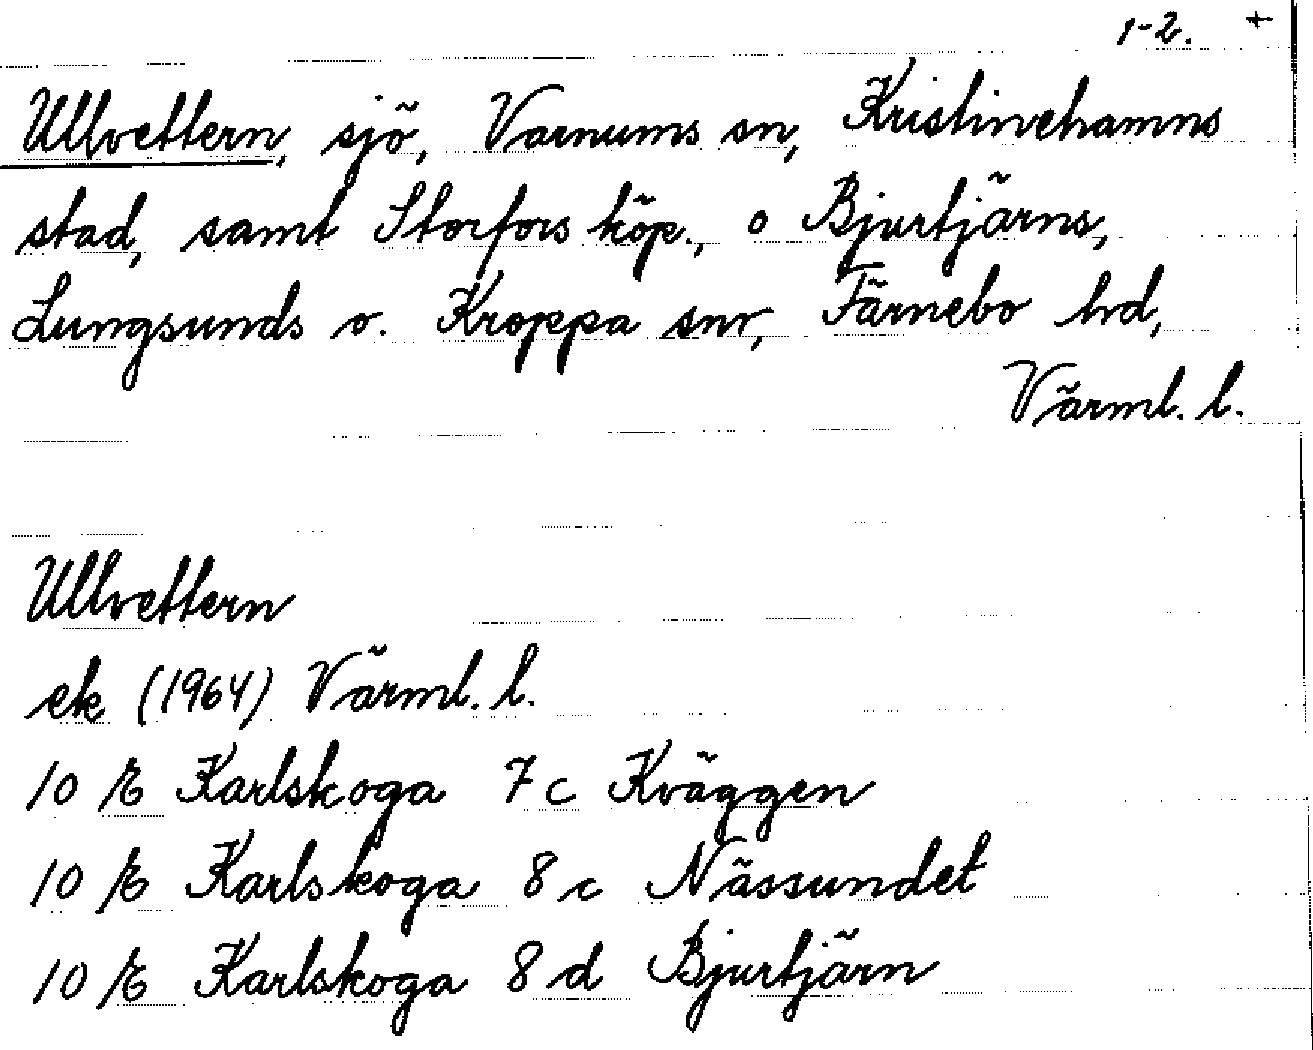 1-2. +
Ullvettern, sjö, Varnums sn, Kristinehamns
stad, samt Storfors köp., o Bjurtjärns,
Lungsunds o. Kroppa snr, Färnebo hd,
Värml. l.
Ullvettern
ek (1964) Värml. l.
10 E Karlskoga 7 c Kväggen
10 E Karlskoga 8 c Nässundet
10 E Karlskoga 8 d Bjurtjärn